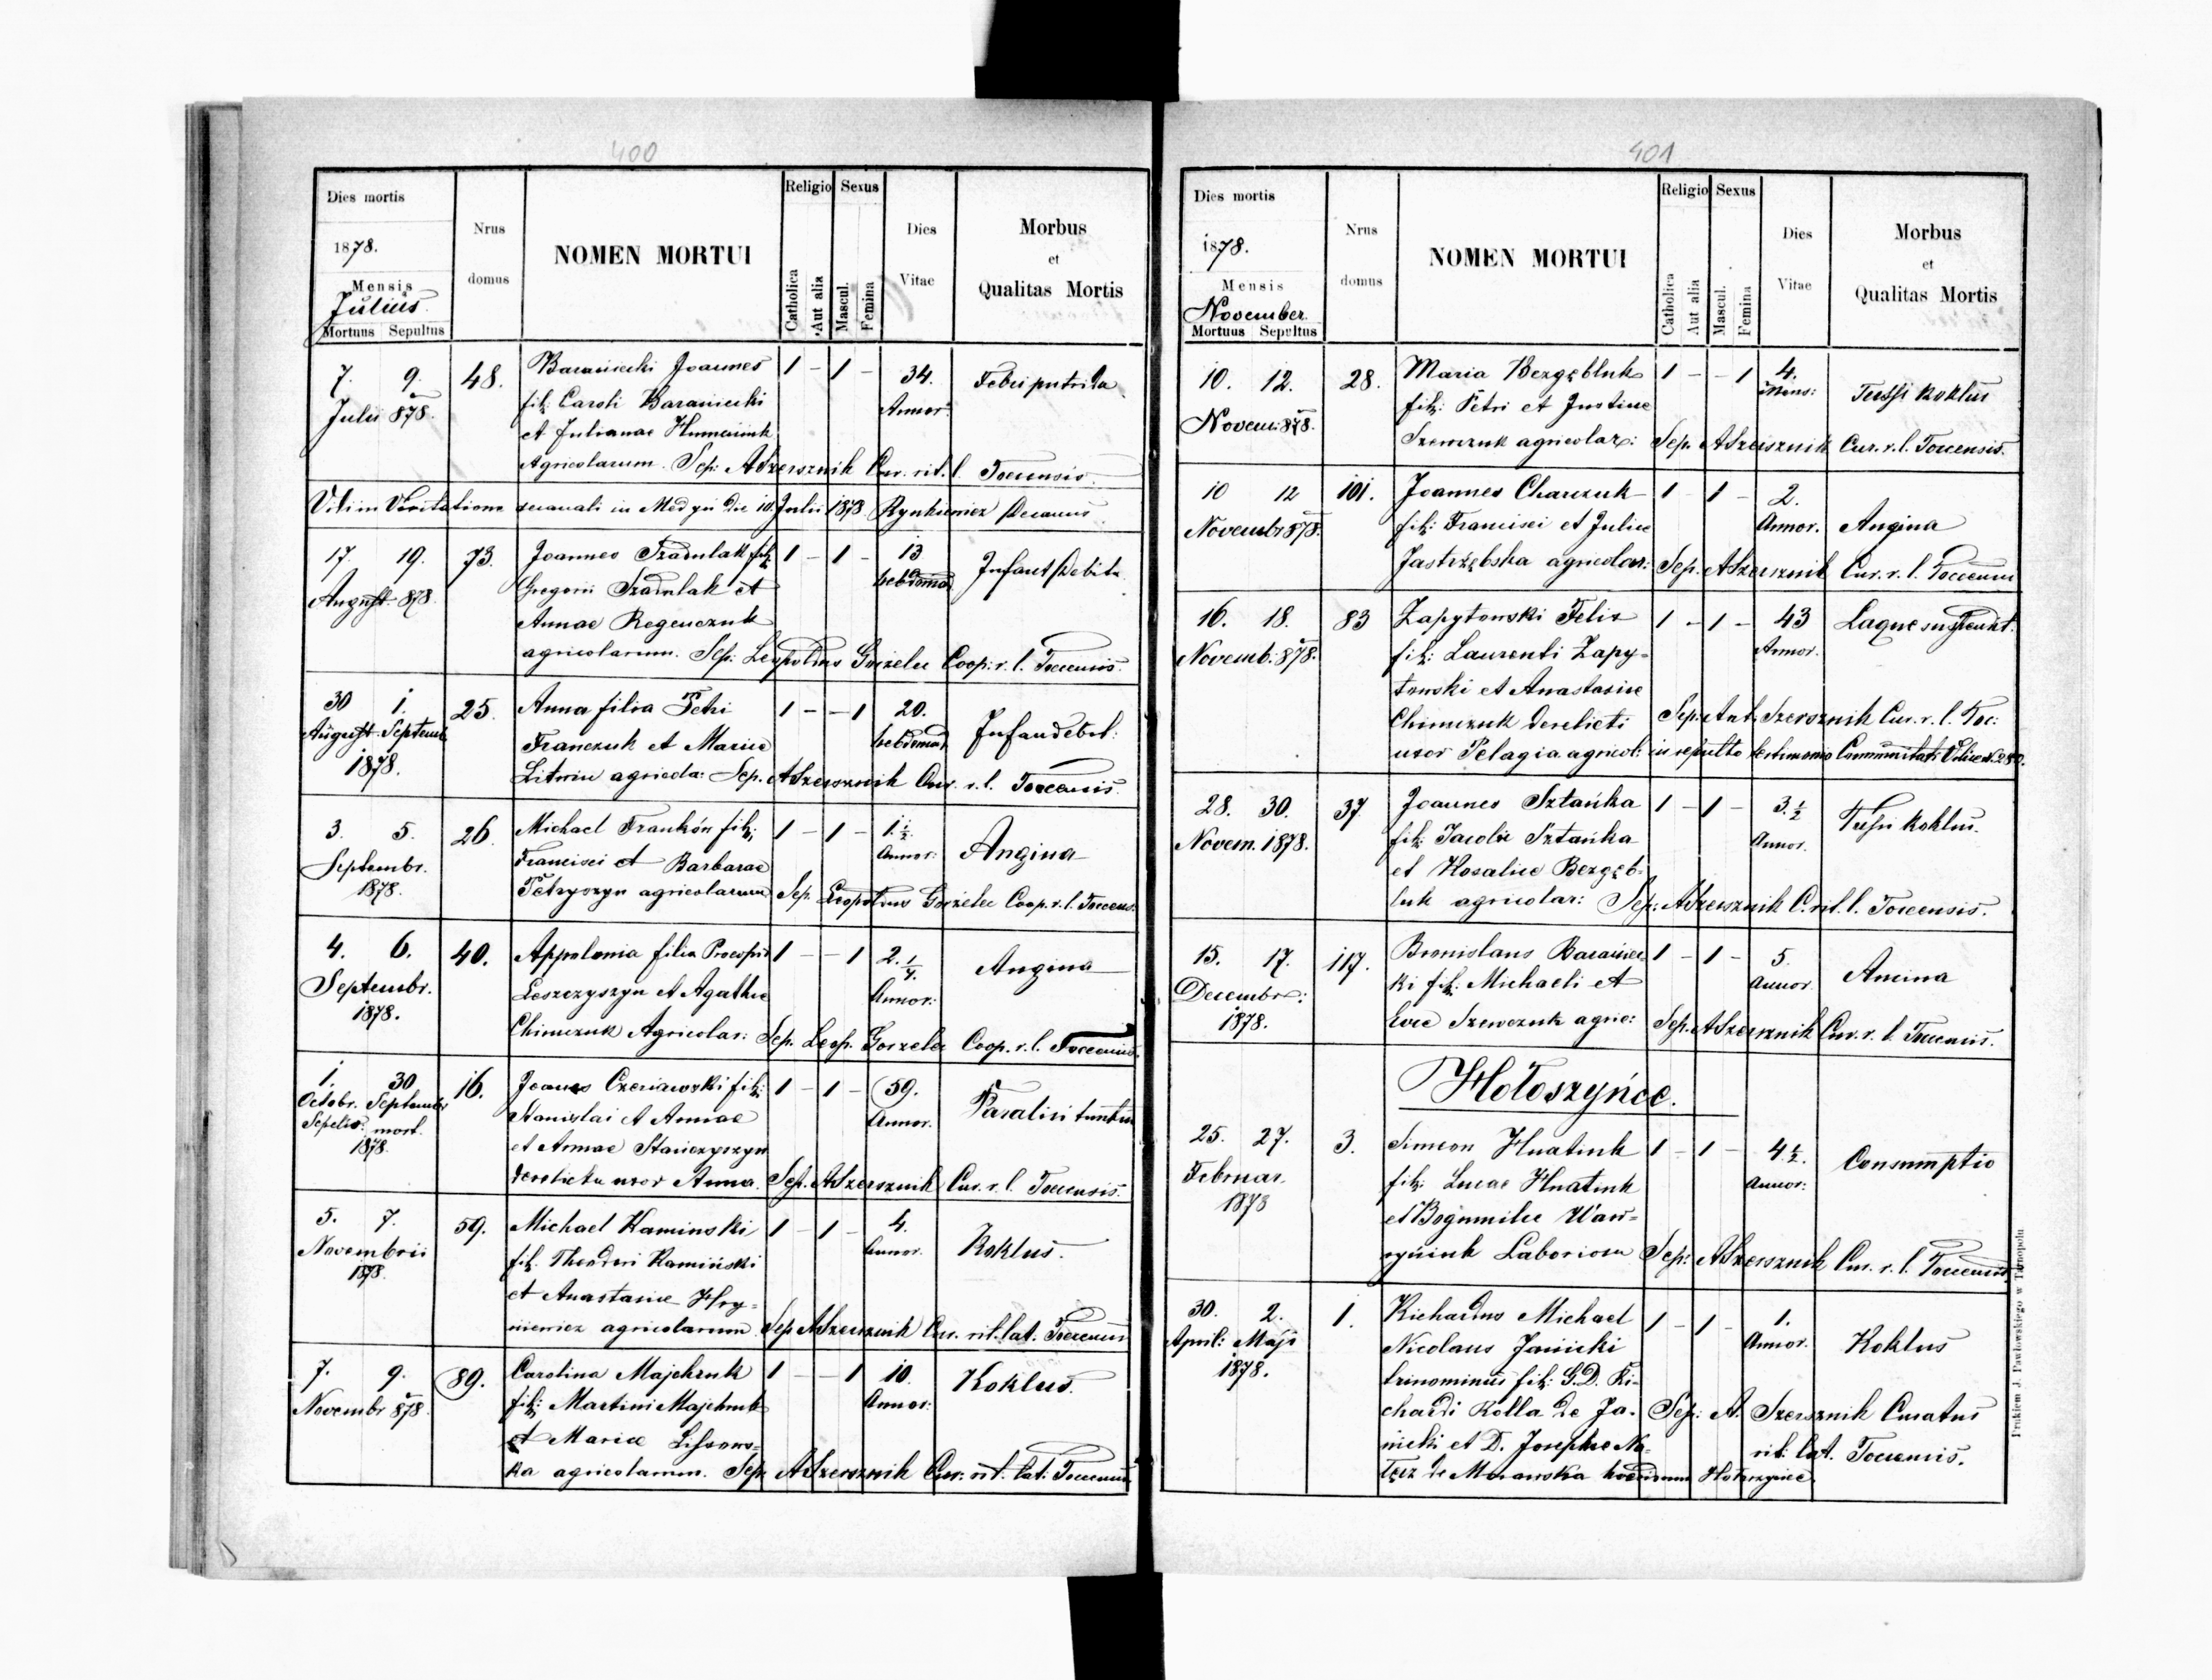 400
Dies mortis
1878.
Mensis
Julius
Mortuus Sepultus
Nrus
domus
NOMEN MORTUI
Religio Sexus
Catholica
Aut alia
Mascul.
Femina
Dies
Vitae
Morbus
et
Qualitas Mortis
7. 9. 48. Baraniecki Joannes 1 - 1 - 34. Febri putrida
Julii 878. fil: Caroli Baraniecki Annor:
et Julianae
Agricolarum. Sep: ASzersznik Cur. rit. l. Tocensis
in Visitatione decanali in Medyn die 10. Julii 1878 Decanus
17. 19. 73. Joannes Szadulak fil: 1 - 1 - 13 Infant Debita
August. 878. Gregorii Szadulak et hebdomad
Annae Regenczuk
agricolarum. Sep: Leopoldus Gorzelec Coop: r. l. Tocensis
30 1. 25. Anna filia Petri 1 - - 1 20. Infandebil:
August. Septemb Franczuk et Mariae hebdomad
1878. Litwin agricola: Sep. ASzersznik Cur. r. l. Tocensis
3. 5. 26. Michael Frankón fil: 1 - 1 - 1. 1/2. Angina
Septembr. Francisci et Barbarae Annor:
1878. Petryszyn agricolarum Sep. Leopoldus Gorzelec Coop. r. l. Tocens.
4. 6. 40. Appolonia filia Procopii 1 - - 1 2. 1/4. Angina
Septembr. Leszczyszyn et Agathae Annor:
1878. Chimczuk Agricolar: Sep. Leop. Gorzelec Coop. r. l. Tocensis.
1. 30 16. Joanes Czeriawski fil: 1 - 1 - 59. Paralisi
Octobr. Septembr Stanislai et Annae Annor.
Sepelio. mort. et Annae Stanczyszyn
1878. derelicta uxor Anna. Sep. ASzersznik Cur. r. l. Tocensis.
5. 7. 59. Michael Kaminski 1 - 1 - 4. Koklus.
Novembrii fil. Theodori Kamiński Annor.
1878. et Anastasiae Hry=
niewicz agricolarum. Sep ASzersznik Cur. rit. lat. Tocensis
7. 9. 89. Carolina Majchruk 1 - - 1 10. Koklus.
Novembr 878. fil: Martini Majchruk Annor:
et Mariae Lissows=
ka agricolarum. Sep. ASzersznik Cur: rit. lat: Tocensis
401
Dies mortis
1878.
Mensis
November.
Mortuus Sepultus
Nrus
domus
NOMEN MORTUI
Religio Sexus
Catholica
Aut alia
Mascul.
Femina
Dies
Vitae
Morbus
et
Qualitas Mortis
10. 12. 28. Maria Bezgębluk 1 - - 1 4. Tussi koklus
Novem: 878. fil: Petri et Justine Mens:
Szewczuk agricolar: Sep. ASzersznik Cur. r. l. Tocensis.
10 12 101. Joannes Charczuk 1 - 1 - 2. Angina
Novembr 878. fil: Francisci et Juliae Annor.
Jastrzębska agricolar: Sep. ASzersznik Cur. r. l. Tocensis
16. 18. 83 Zapytowski Felix 1 - 1 - 43
Novemb: 878. fil: Laurenti Zapy= Annor.
towski et Anastasiae
Chimczuk derelicti Sep: Ant. Szersznik Cur. r. l. Toc:
uxor Pelagia agricol: Communitatis
28. 30. 37 Joannes Sztańka 1 - 1 - 3. 1/2 Tussi koklus.
Novem. 1878. fil: Jacobi Sztańka Annor.
et Rosaliae Bezgęb=
luk agricolar: Sep: ASzersznik C. rit. l. Tocensis.
15. 17. 117. Bronislaus Baraniec= 1 - 1 - 5. Ancina
Decembr: ki fil: Michaeli et Annor.
1878. Evae Szewczuk agric: Sep. ASzersznik Cur. r. l. Tocensis.
Hołoszyńce.
25. 27. 3. Simeon Hnatiuk 1 - 1 - 4 1/2. Consumptio
Februar. fil: Lucae Hnatiuk Annor:
1878 et Bogumilae Waw=
ryniuk Laboriosa Sep: ASzersznik Cur. r. l. Tocensis
30. 2. 1. Richardus Michael 1 - 1 - 1. Koklus
April: Maji Nicolaus Janicki Annor.
1878. trinominus fil: G.D. Ri=
chardi Rolla de Ja= Sep: A. Szersznik Curatus
nicki et D. Josephae Na= rit: lat. Tocensis.
łęcz de Morawska haeredum Hołoszyńce
Drukiem J. Pawłowskiego w Tarnopolu